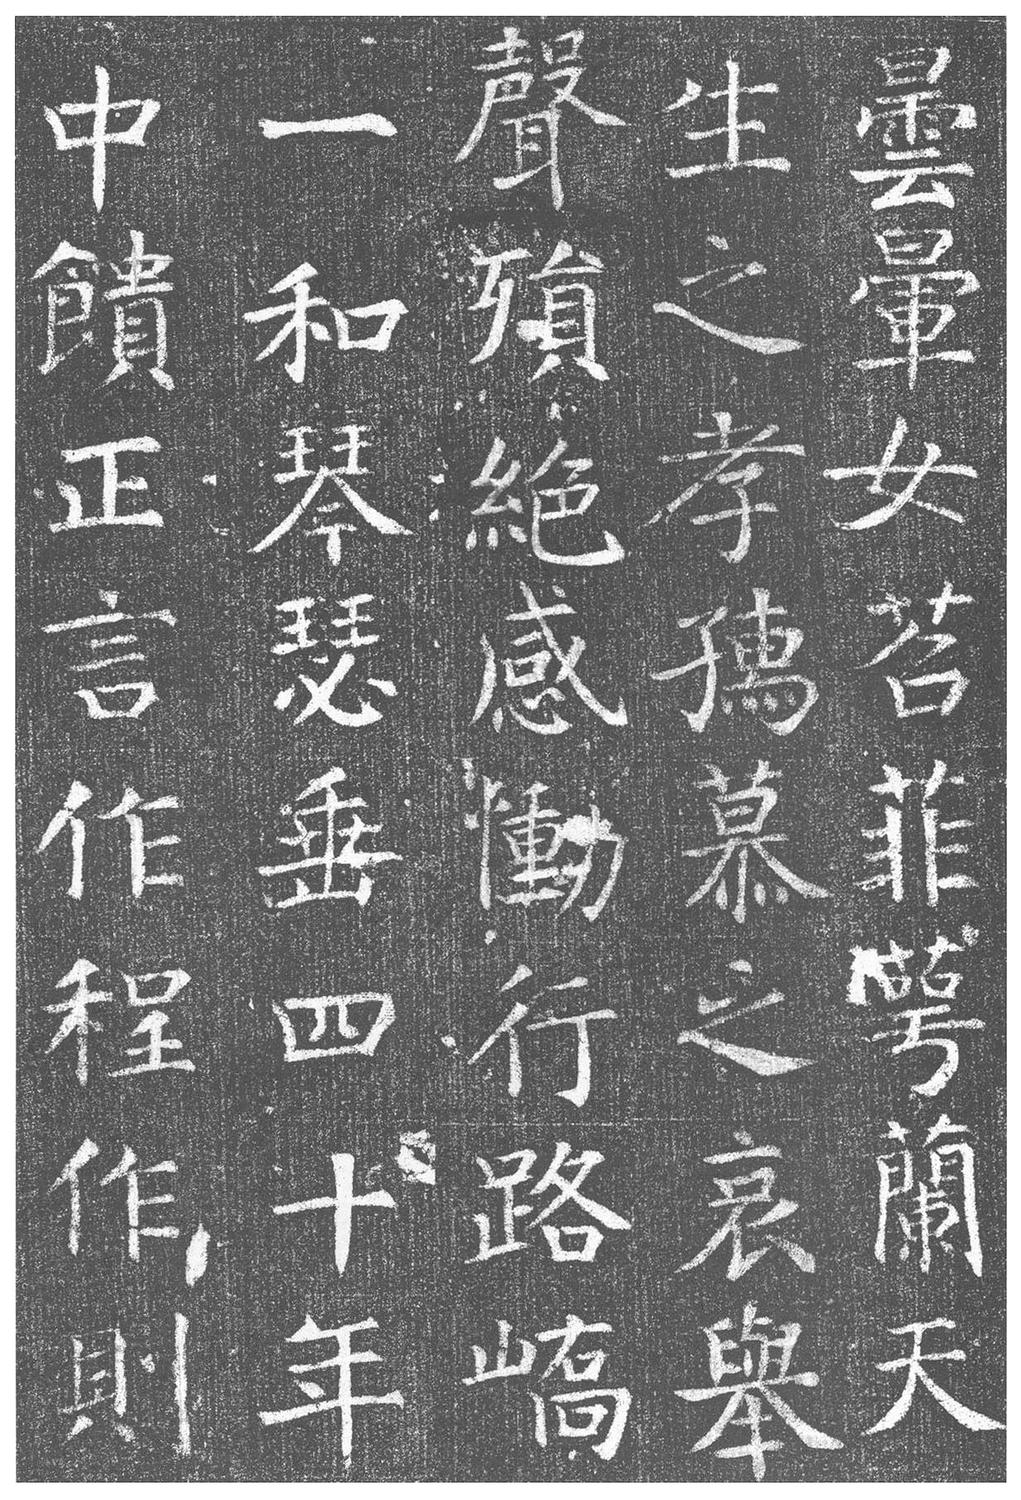 曇暈女苕菲蕚蘭天
生之孝孺慕之哀舉
聲殞絕感慟行路嶠
一和琴瑟垂四十年
中饋正言作程作則